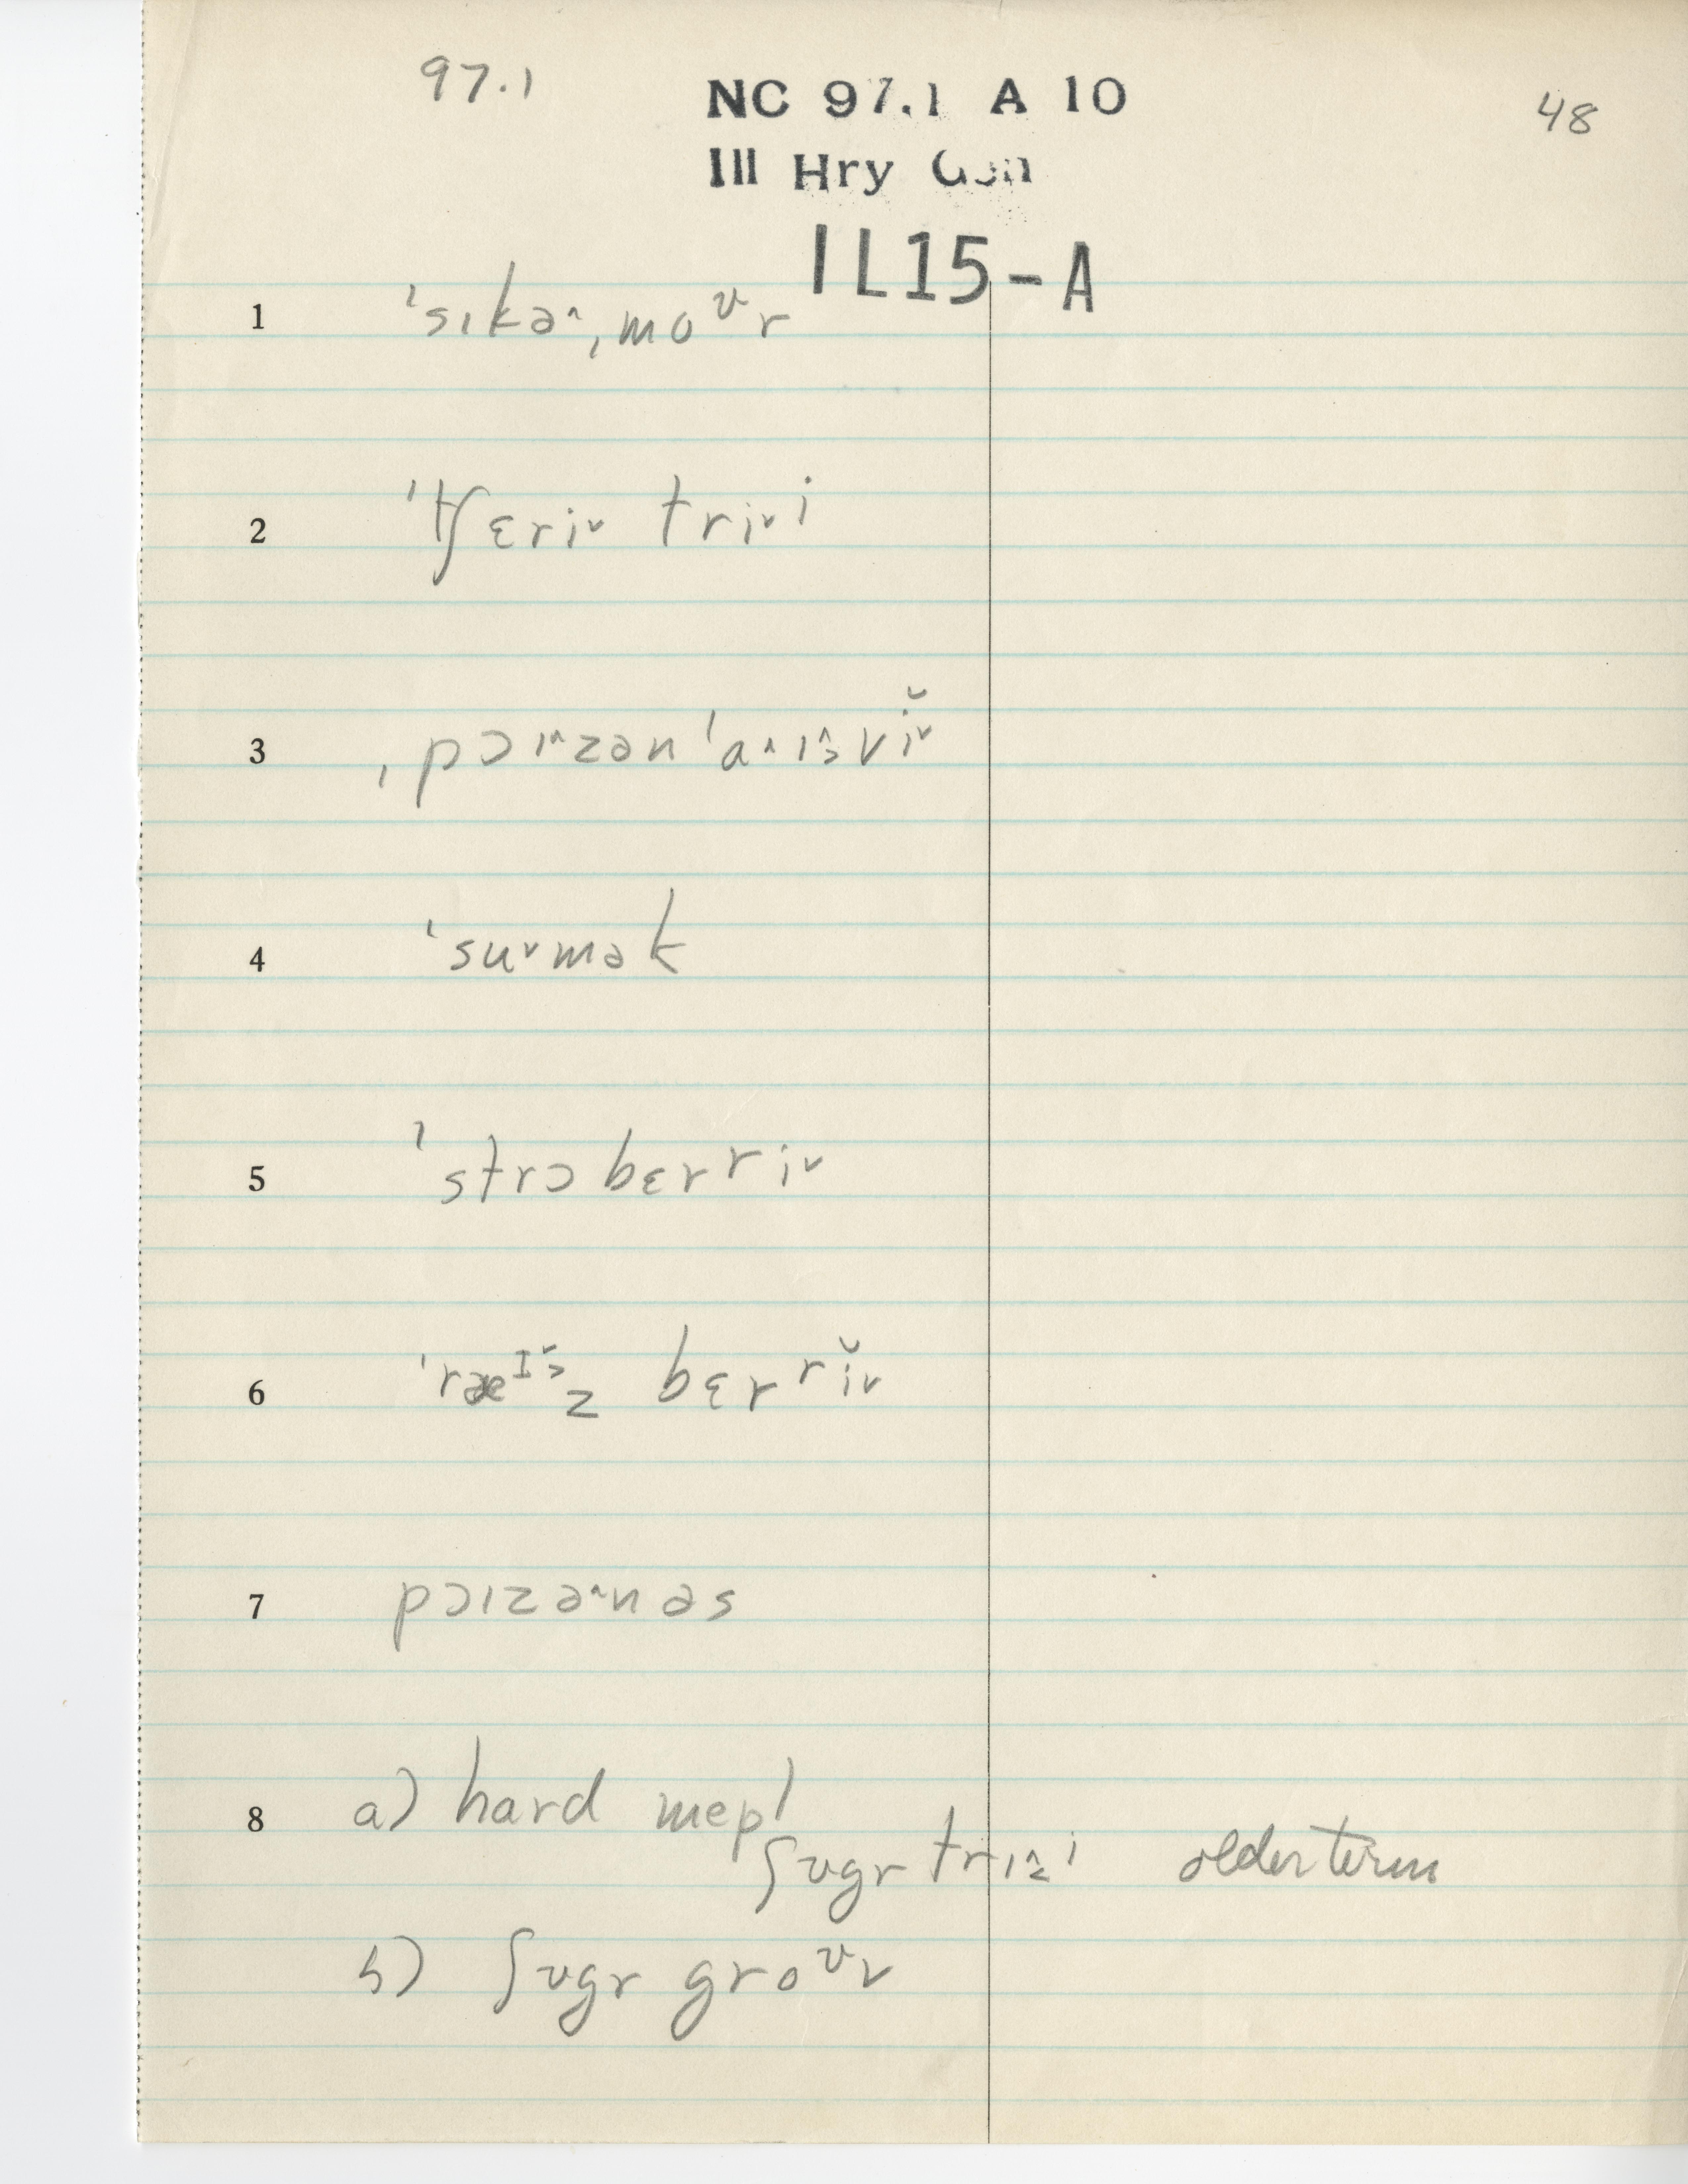 97.1
NC 97.1 A 10
48
Ill Hry Gen
IL15-A
1 ˈsɪkə˄ˌmoᶷr
2 ˈtʃɛri˅ tri˅i
3 ˌpɔɪ˄zən ˈa˄ɪ˄˒vĭ˅
4 ˈsu˅mək
5 ˈstrɔbɛrri˅
6 ˈræᴵ˅˒z bɛrrĭ˅
7 pɔɪzə˄nəs
8 a) hard mepl
ʃʊgr trɪ˄˱i older term
b) ʃʊgr groᶷv